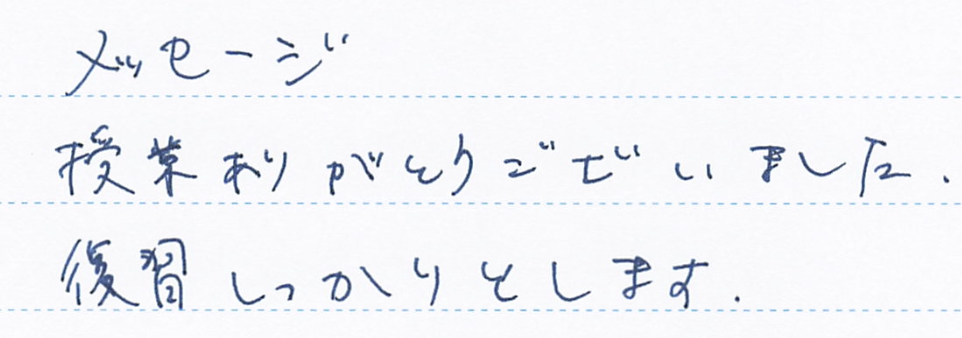 メッセージ
授業ありがとうございました.
復習しっかりとします.